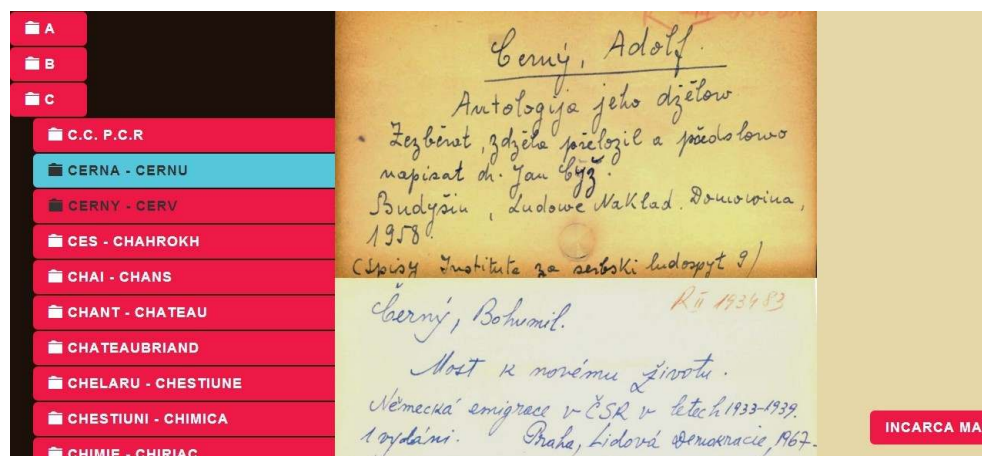 A
B
C
C.C. P.C.R
CERNA - CERNU
CERNY - CERV
CES - CHAHROKH
CHAI - CHANS
CHANT - CHATEAU
CHATEAUBRIAND
CHELARU - CHESTIUNE
CHESTIUNI - CHIMICA
CHIMIE - CHIRIAC
Černý, Adolf.
Antologija jeho dźěłow
Zezběrał, zdźěla přełožil a předsłowo
napisał dr. Jan Cyž.
Budyšin, Ludowe Nakład. Domowina,
1958.
(Spisy Instituta za serbski ludospyt 9)
R II 193483
Černý, Bohumil.
Most k novému životu.
Německá emigrace v ČSR v letech 1933-1939.
1 vydáni. Praha, Lidová demokracie, 1967.
INCARCA MA